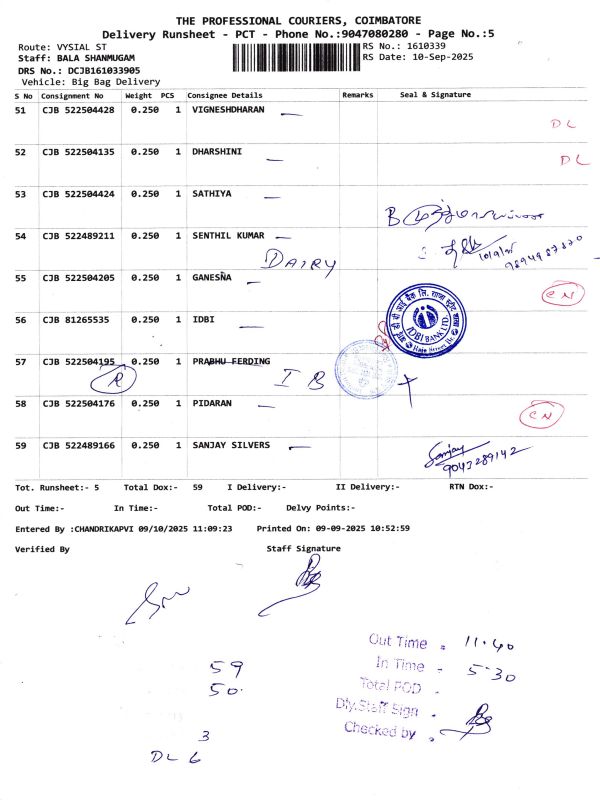 THE PROFESSIONAL COURIERS, COIMBATORE
Delivery Runsheet - PCT - Phone No.:9047080280 - Page No.:5
Route: VYSIAL ST
RS No.: 1610339
Staff: BALA SHANMUGAM
RS Date: 10-Sep-2025
DRS No.: DCJB161033905
Vehicle: Big Bag Delivery
S No Consignment No Weight PCS Consignee Details Remarks Seal & Signature
51 CJB 522504428 0.250 1 VIGNESHDHARAN
DL
52 CJB 522504135 0.250 1 DHARSHINI
DL
53 CJB 522504424 0.250 1 SATHIYA
54 CJB 522489211 0.250 1 SENTHIL KUMAR
DAIRY
10/9/25
55 CJB 522504205 0.250 1 GANESNA
CN
56 CJB 81265535 0.250 1 IDBI
आई डी बी आई बैंक लि.
IDBI BANK LTD.
57 CJB 522504195 0.250 1 PRABHU FERDING
R
I B
58 CJB 522504176 0.250 1 PIDARAN
CN
59 CJB 522489166 0.250 1 SANJAY SILVERS
Sanjay
9043289142
Tot. Runsheet:- 5 Total Dox:- 59 I Delivery:- II Delivery:- RTN Dox:-
Out Time:- In Time:- Total POD:- Delvy Points:-
Entered By :CHANDRIKAPVI 09/10/2025 11:09:23 Printed On: 09-09-2025 10:52:59
Verified By Staff Signature
Out Time 11.40
In Time 5.30
Total POD
Dly.Staff Sign
Checked by
59
50
3
DL 6